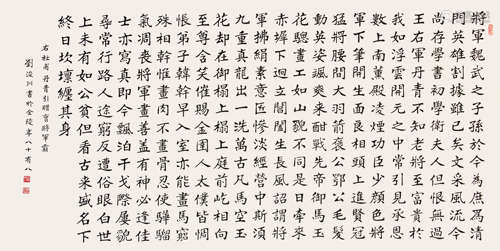 將軍魏武之子孫於今為庶為清
門英雄割據雖已矣文采風流今
尚存學書初學衛夫人但恨無過
王右軍丹青不知老將至富貴於
我如浮雲開元之中常引見承恩
數上南薰殿凌煙功臣少顏色將
軍下筆開生面良相頭上進賢冠
猛將腰間大羽箭褒公鄂公毛髮
動英姿颯爽來酣戰先帝御馬玉
花驄畫工如山貌不同是日牽來
赤墀下迥立閶闔生長風詔謂將
軍拂絹素意匠慘淡經營中斯須
九重真龍出一洗萬古凡馬空玉
花却在御榻上榻上庭前屹相向
至尊含笑催賜金圉人太僕皆惆
悵弟子韓幹早入室亦能畫馬窮
殊相幹惟畫肉不畫骨忍使驊騮
氣凋喪將軍畫善蓋有神必逢佳
士亦寫真即今飄泊干戈際屢貌
尋常行路人途窮反遭俗眼白世
上未有如公貧但看古來盛名下
終日坎壈纏其身
右杜甫丹青引贈曹將軍霸
劉浚川書於金陵年八十有八